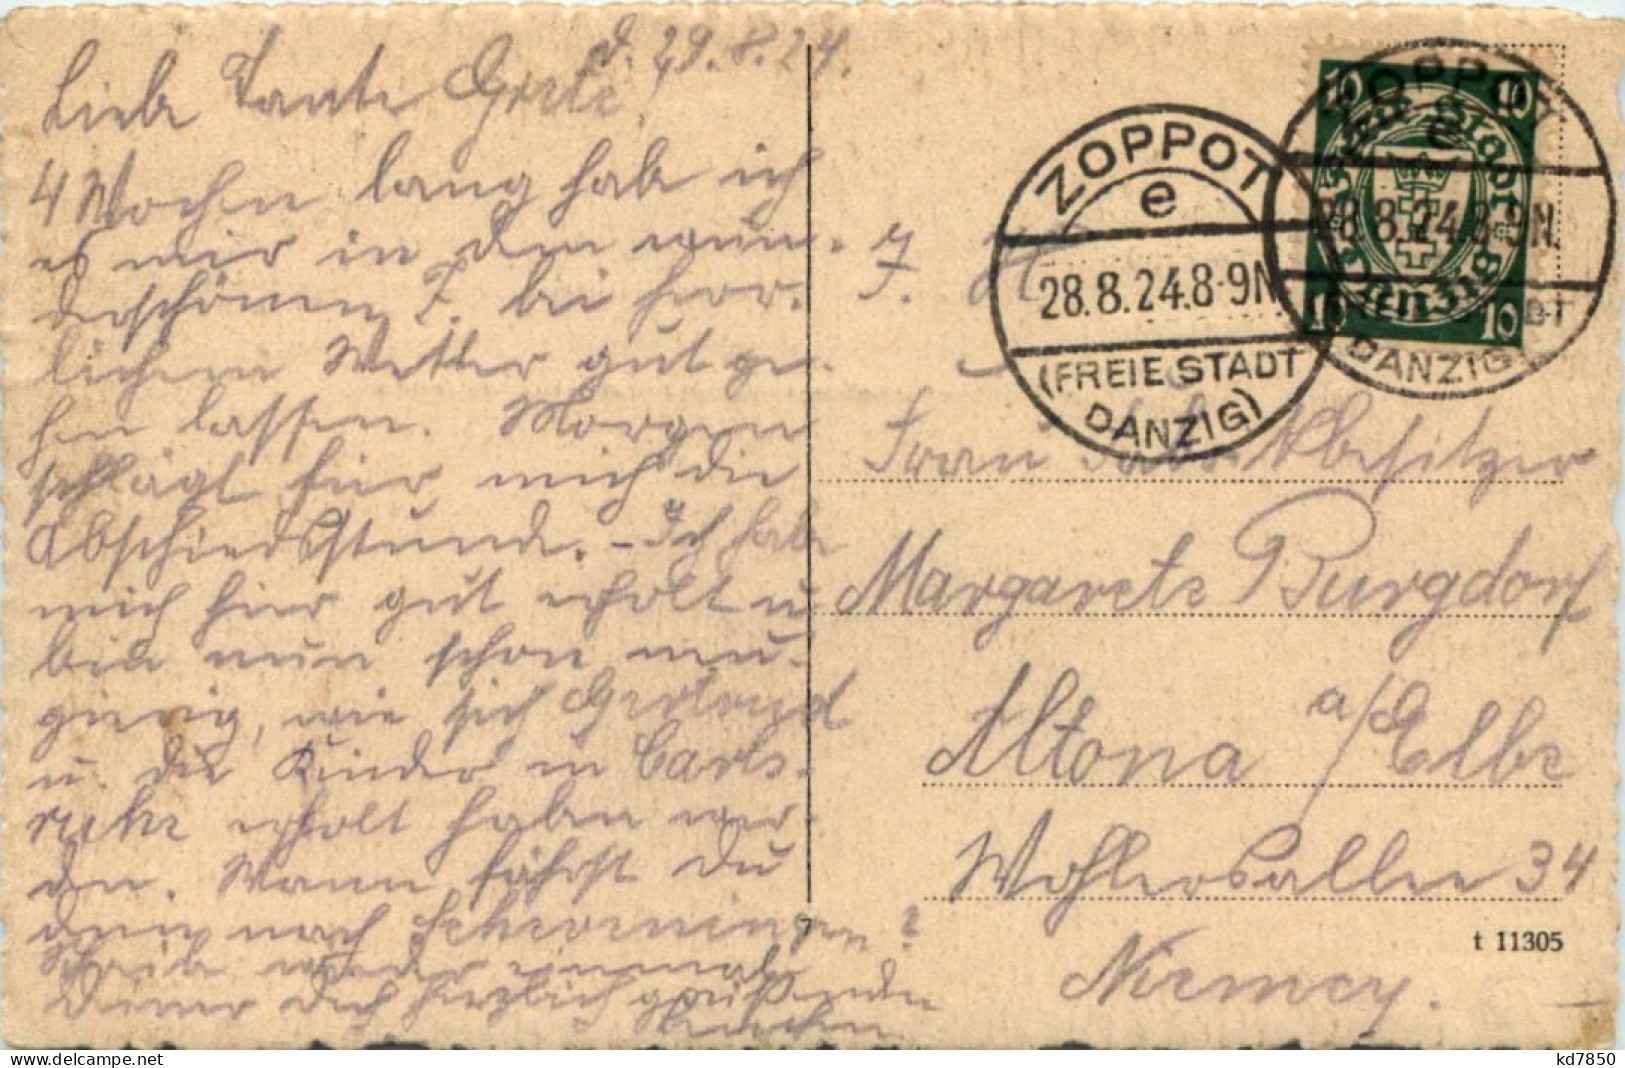 d. 29.8.24.
Liebe Tante Grete!
4 Wochen lang habe ich
es mir in dem wun-
derschönen Z. bei herr-
lichem Wetter gut ge-
hen lassen. Morgen
schlägt für mich die
Abschiedsstunde. – Ich habe
mich hier gut erholt u
bin nun schon neu-
gierig, wie sich
u. die Kinder in Carls-
ruhe erholt haben wer-
den. Wann fährst Du
denn nach
Schreib wieder einmal
Deiner Dich herzlich grüßenden
ZOPPOT
e
28.8.24.8-9N.
(FREIE STADT
DANZIG)
ZOPPOT
e
28.8.24.8-9N.
DANZIG)
10 10
Freie Stadt
Danzig
10 10
Frau Fabrikbesitzer
Margarete Burgdorf
Altona a/Elbe
Wohlersallee 34
Niemcy.
t 11305
kd7850